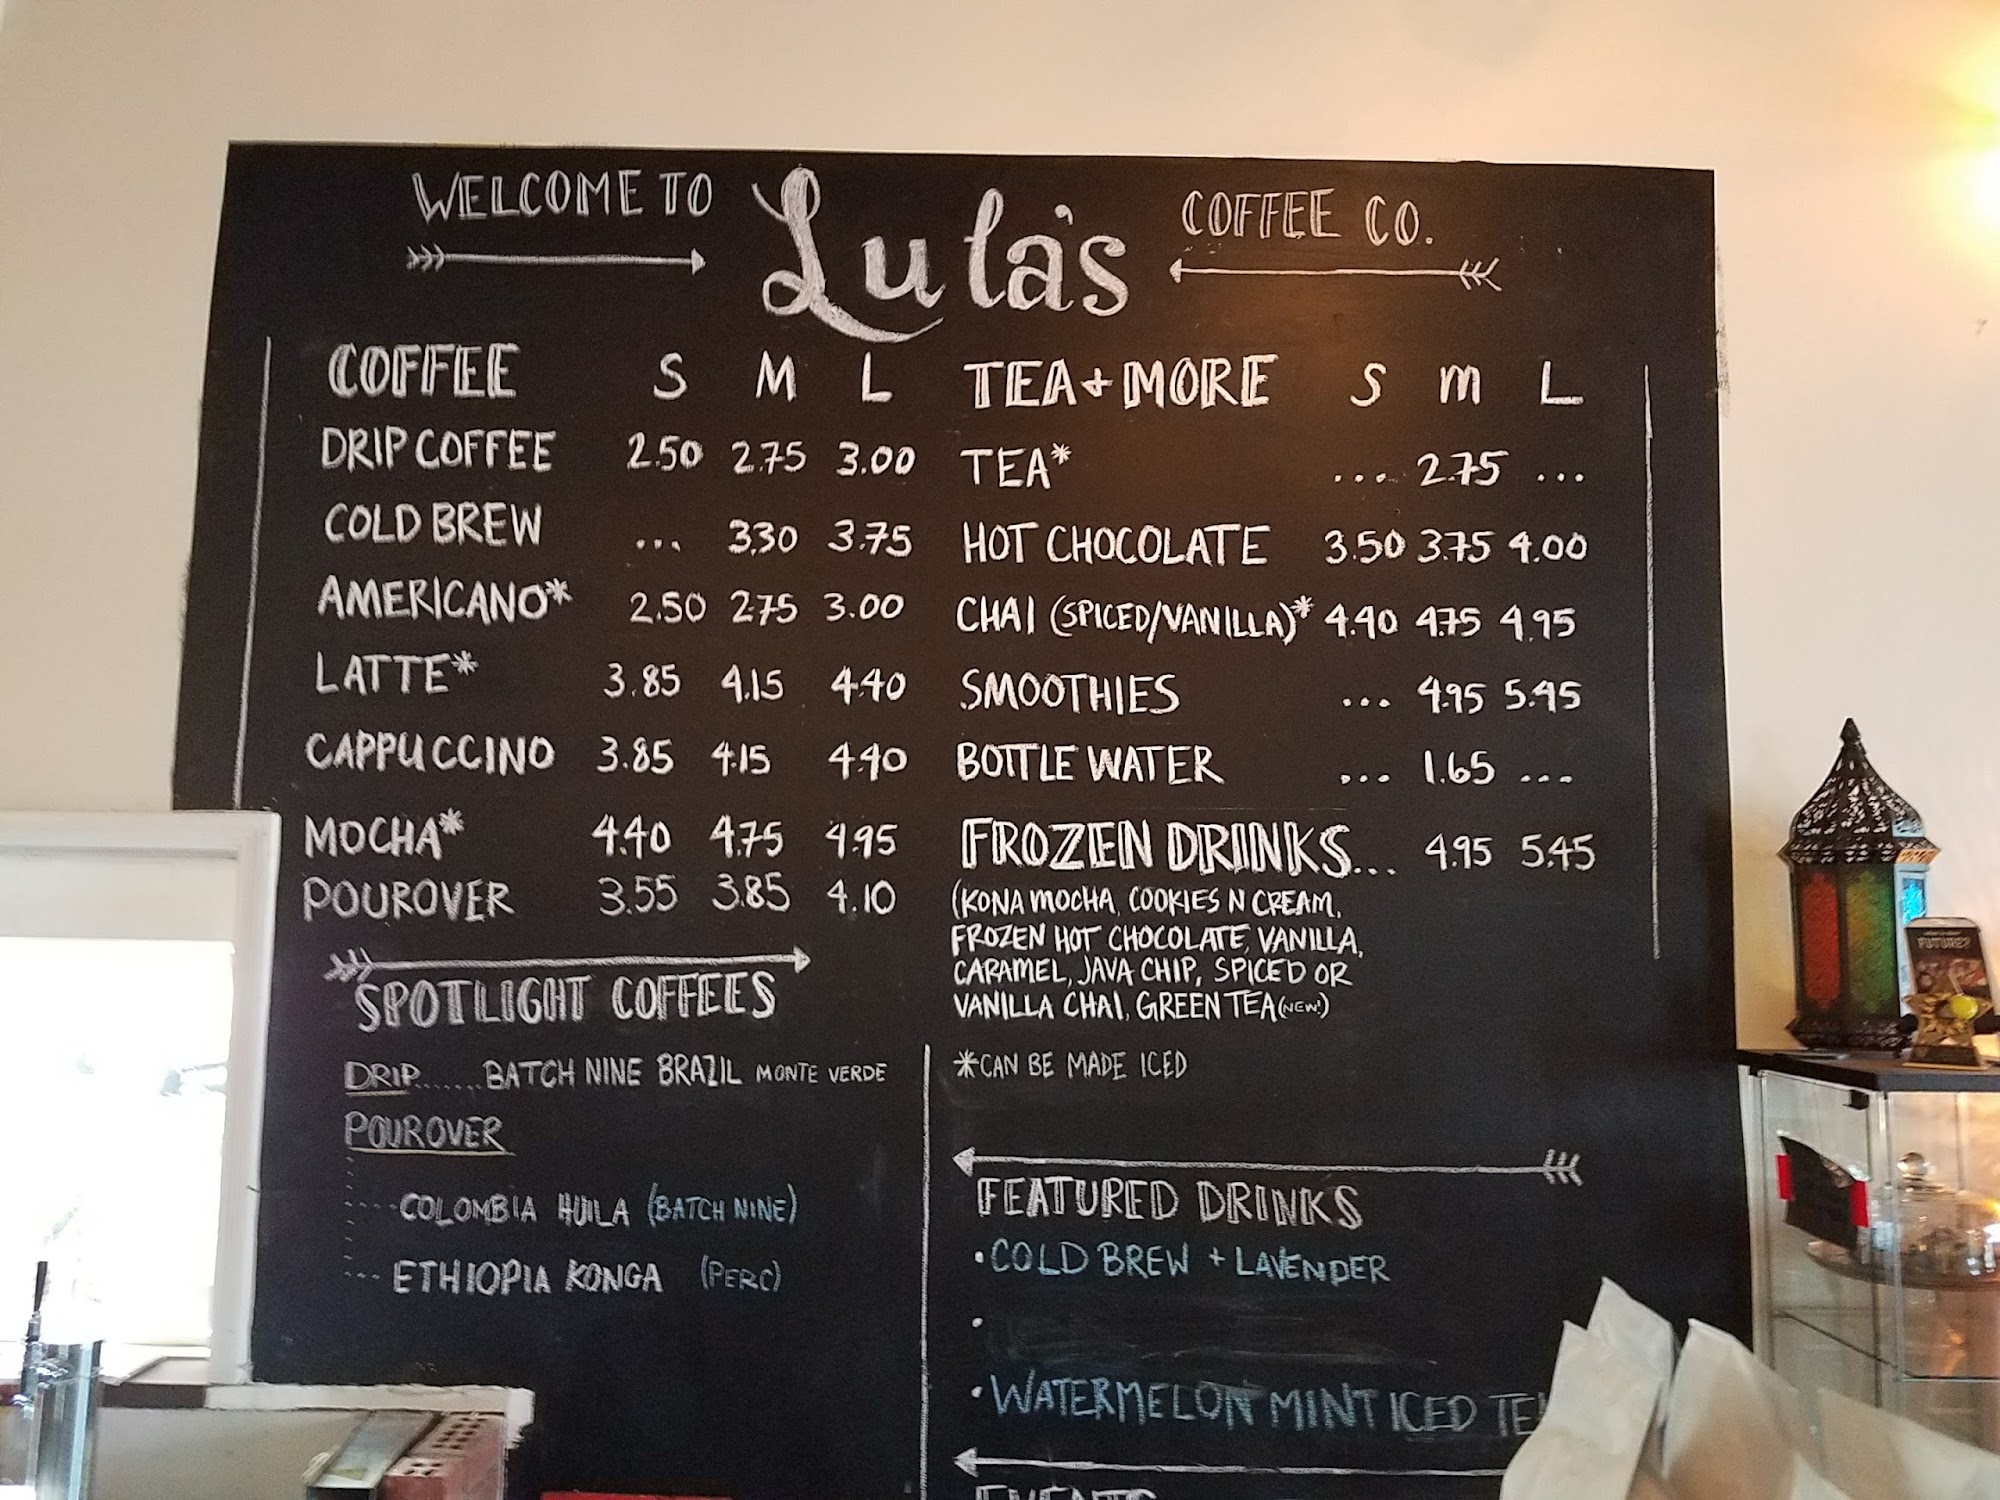 WELCOME TO Lula's COFFEE CO.
COFFEE S M L
DRIP COFFEE 2.50 2.75 3.00
COLD BREW ... 3.30 3.75
AMERICANO* 2.50 2.75 3.00
LATTE* 3.85 4.15 4.40
CAPPUCCINO 3.85 4.15 4.40
MOCHA* 4.40 4.75 4.95
POUROVER 3.55 3.85 4.10
SPOTLIGHT COFFEES
DRIP.......BATCH NINE BRAZIL MONTE VERDE
POUROVER
....COLOMBIA HUILA (BATCH NINE)
...ETHIOPIA KONGA (PERC)
TEA + MORE S M L
TEA* ... 2.75 ...
HOT CHOCOLATE 3.50 3.75 4.00
CHAI (SPICED/VANILLA)* 4.40 4.75 4.95
SMOOTHIES ... 4.95 5.45
BOTTLE WATER ... 1.65 ...
FROZEN DRINKS... 4.95 5.45
(KONA MOCHA, COOKIES N CREAM,
FROZEN HOT CHOCOLATE, VANILLA,
CARAMEL, JAVA CHIP, SPICED OR
VANILLA CHAI, GREEN TEA (NEW!)
*CAN BE MADE ICED
FEATURED DRINKS
• COLD BREW + LAVENDER
•
• WATERMELON MINT ICED TE
EVENTS
FUTURE?